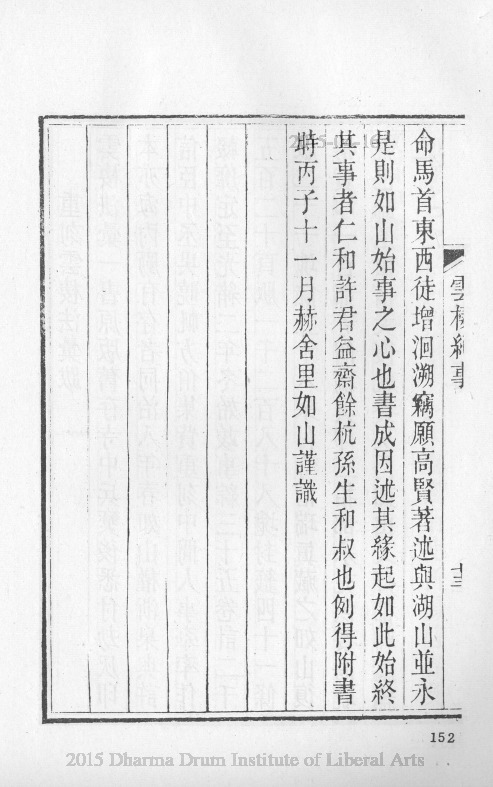 雲棲紀事
十三
命馬首東西徒增洄溯竊願高賢著述與湖山並永
是則如山始事之心也書成因述其緣起如此始終
其事者仁和許君益齋餘杭孫生和叔也例得附書
時丙子十一月赫舍里如山謹識
152
2015 Dharma Drum Institute of Liberal Arts